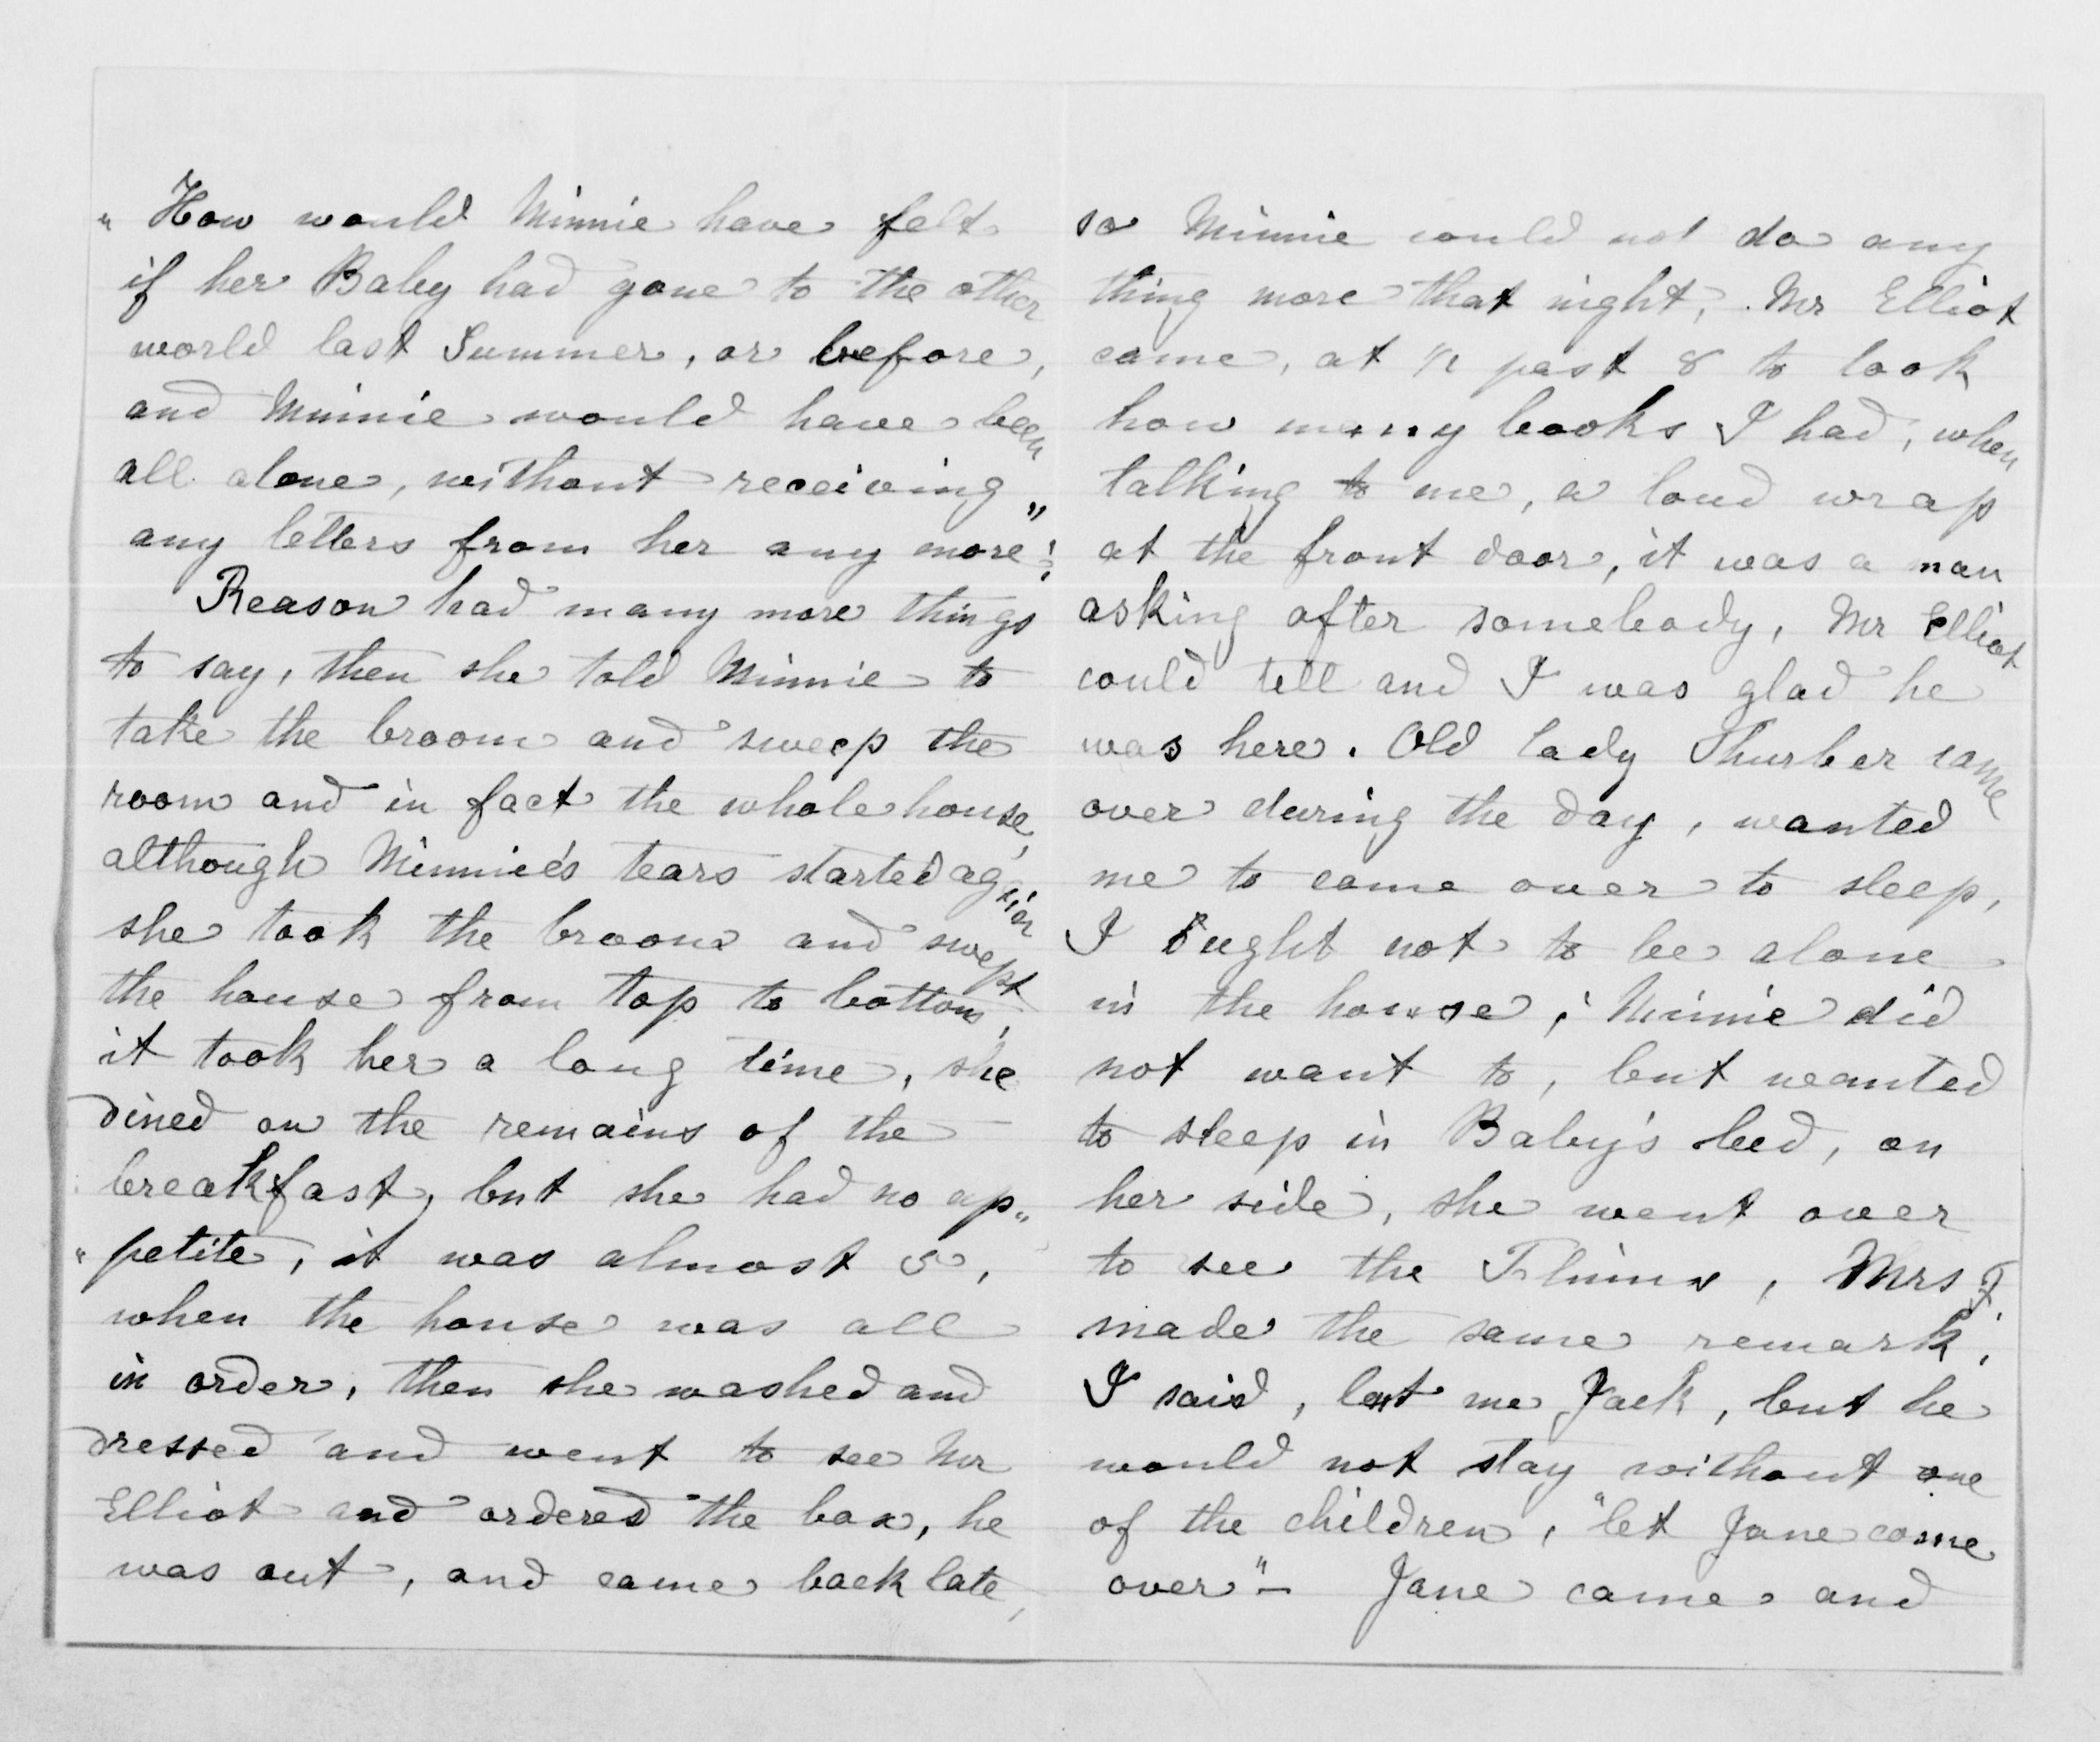 " How would Minnie have felt
if her Baby had gone to the other
world last Summer, or before,
and Minnie would have been
all alone, without receiving
any letters from her any more"!
Reason had many more things
to say, then she told Minnie to
take the broom and sweep the
room and in fact the whole house,
although Minnie's tears started again
she took the broom and swept
the house from top to bottom,
it took her a long time, she
dined on the remains of the
breakfast, but she had no ap„
"petite, it was almost 5,
when the house was all
in order, then she washed and
dressed and went to see Mr
Elliot and ordered the box, he
was out, and came back late,
so Minnie could not do any
thing more that night, Mr Elliot
came, at 1/2 past 8 to look
how many books I had, when
talking to me, a loud wrap
at the front door, it was a man
asking after somebody, Mr Elliot
could tell and I was glad he
was here. Old lady Thurber came
over during the day, wanted
me to come over to sleep,
I ought not to be alone
in the house, Minnie did
not want to, but wanted
to sleep in Baby's bed, on
her side, she went over
to see the Flinns, Mrs F.
made the same remark,
I said, let me Jack, but he
would not stay without one
of the children, "let Jane come
over"— Jane came and